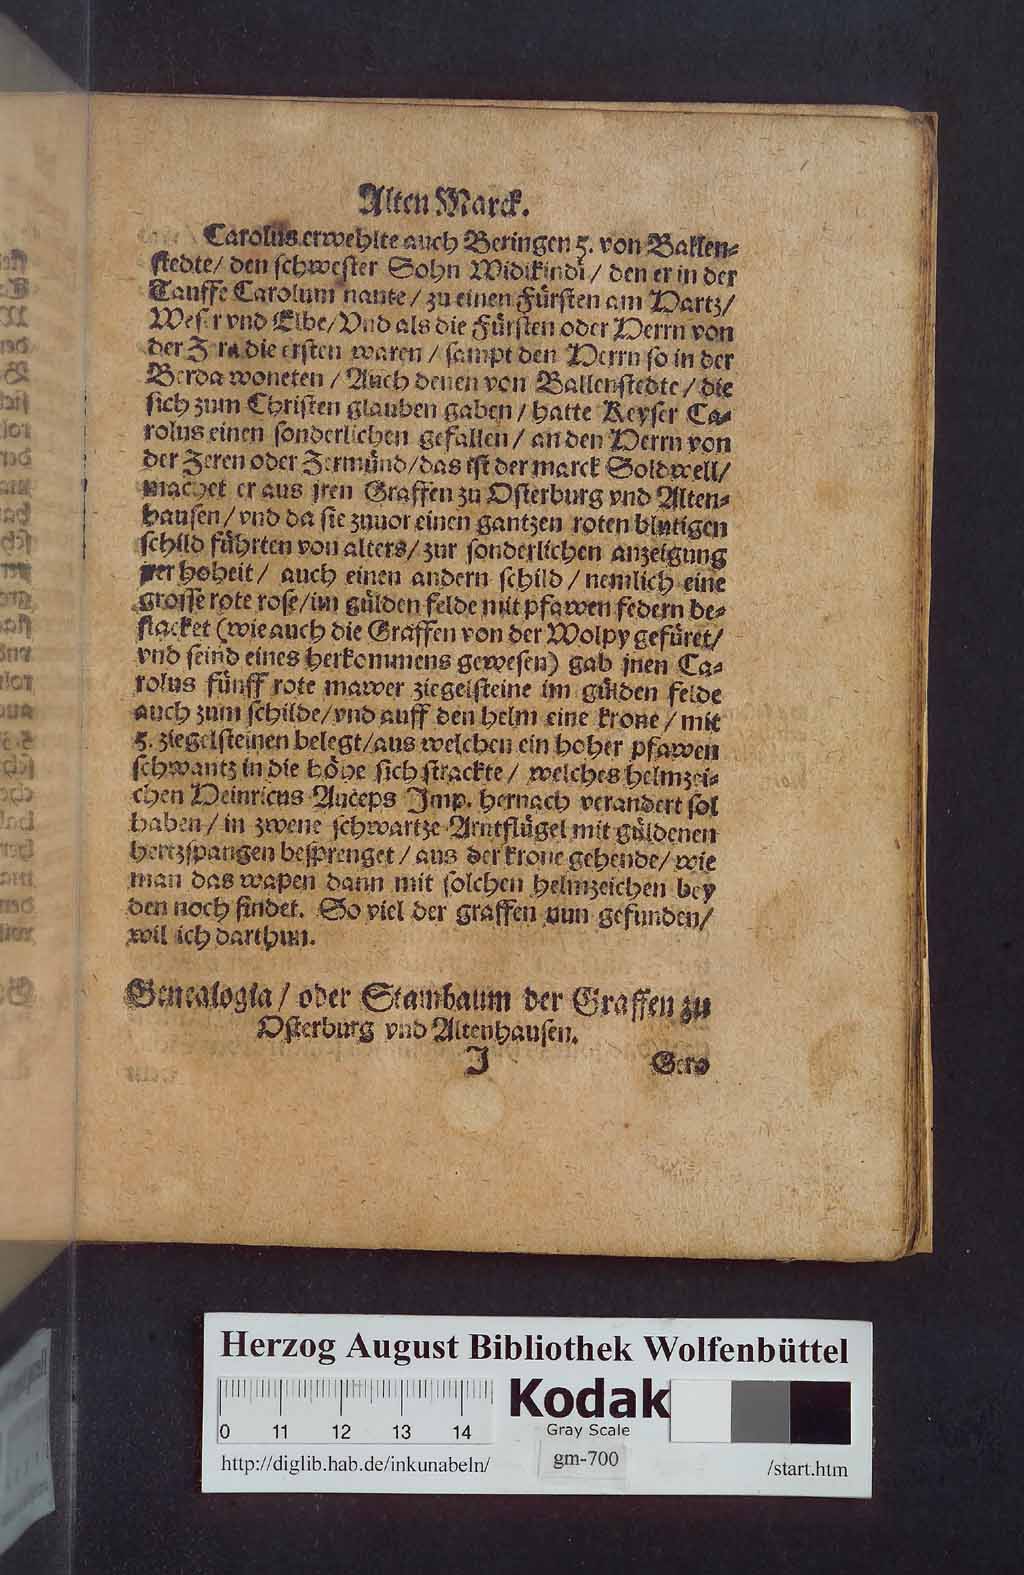 Alten Marck.
Carolus erwehlte auch Beringen 5. von Ballen-
stedte/ den schwester Sohn Widikindi/ den er in der
Tauffe Carolum nante/ zu einen Fürsten am Hartz/
Weser vnd Elbe/ Vnd als die Fürsten oder Herrn von
der Jera die ersten waren/ sampt den Herrn so in der
Berda woneten/ Auch denen von Ballenstedte/ die
sich zum Christen glauben gaben/ hatte Keyser Ca-
rolus einen sonderlichen gefallen/ an den Herrn von
der Jeren oder Jermünd/ das ist der marck Soldwell/
machet er aus jren Graffen zu Osterburg vnd Alten-
hausen/ vnd da sie zuuor einen gantzen roten blutigen
schild führten von alters/ zur sonderlichen anzeigung
jrer hoheit/ auch einen andern schild/ nemlich eine
grosse rote rose/ im gülden felde mit pfawen federn be-
stacket (wie auch die Graffen von der Wolpy gefüret/
vnd seind eines herkommens gewesen) gab jnen Ca-
rolus fünff rote mawer ziegelsteine im gülden felde
auch zum schilde/ vnd auff den helm eine krone/ mit
5. ziegelsteinen belegt/ aus welchen ein hoher pfawen
schwantz in die höhe sich strackte/ welches helmzei-
chen Heinricus Auceps Imp. hernach verandert sol
haben/ in zwene schwartze Arntflügel mit güldenen
hertzspangen besprenget/ aus der krone gehende/ wie
man das wapen dann mit solchen helmzeichen bey
den noch findet. So viel der graffen nun gefunden/
wil ich darthun.
Genealogia/ oder Stambaum der Graffen zu
Osterburg vnd Altenhausen.
J Gero
Herzog August Bibliothek Wolfenbüttel
Kodak
Gray Scale
0 11 12 13 14
http://diglib.hab.de/inkunabeln/ gm-700 /start.htm